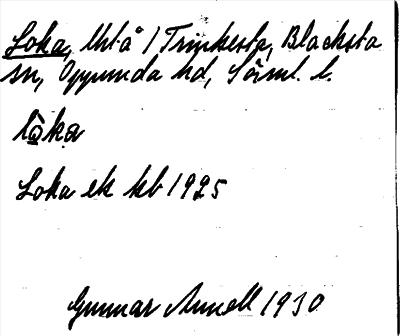 Loka, lht å / Trinkesta, Blacksta
sn, Oppunda hd, Sörml. l.
lo̲ka
Loka ek kb 1925
Gunnar Arnell 1930